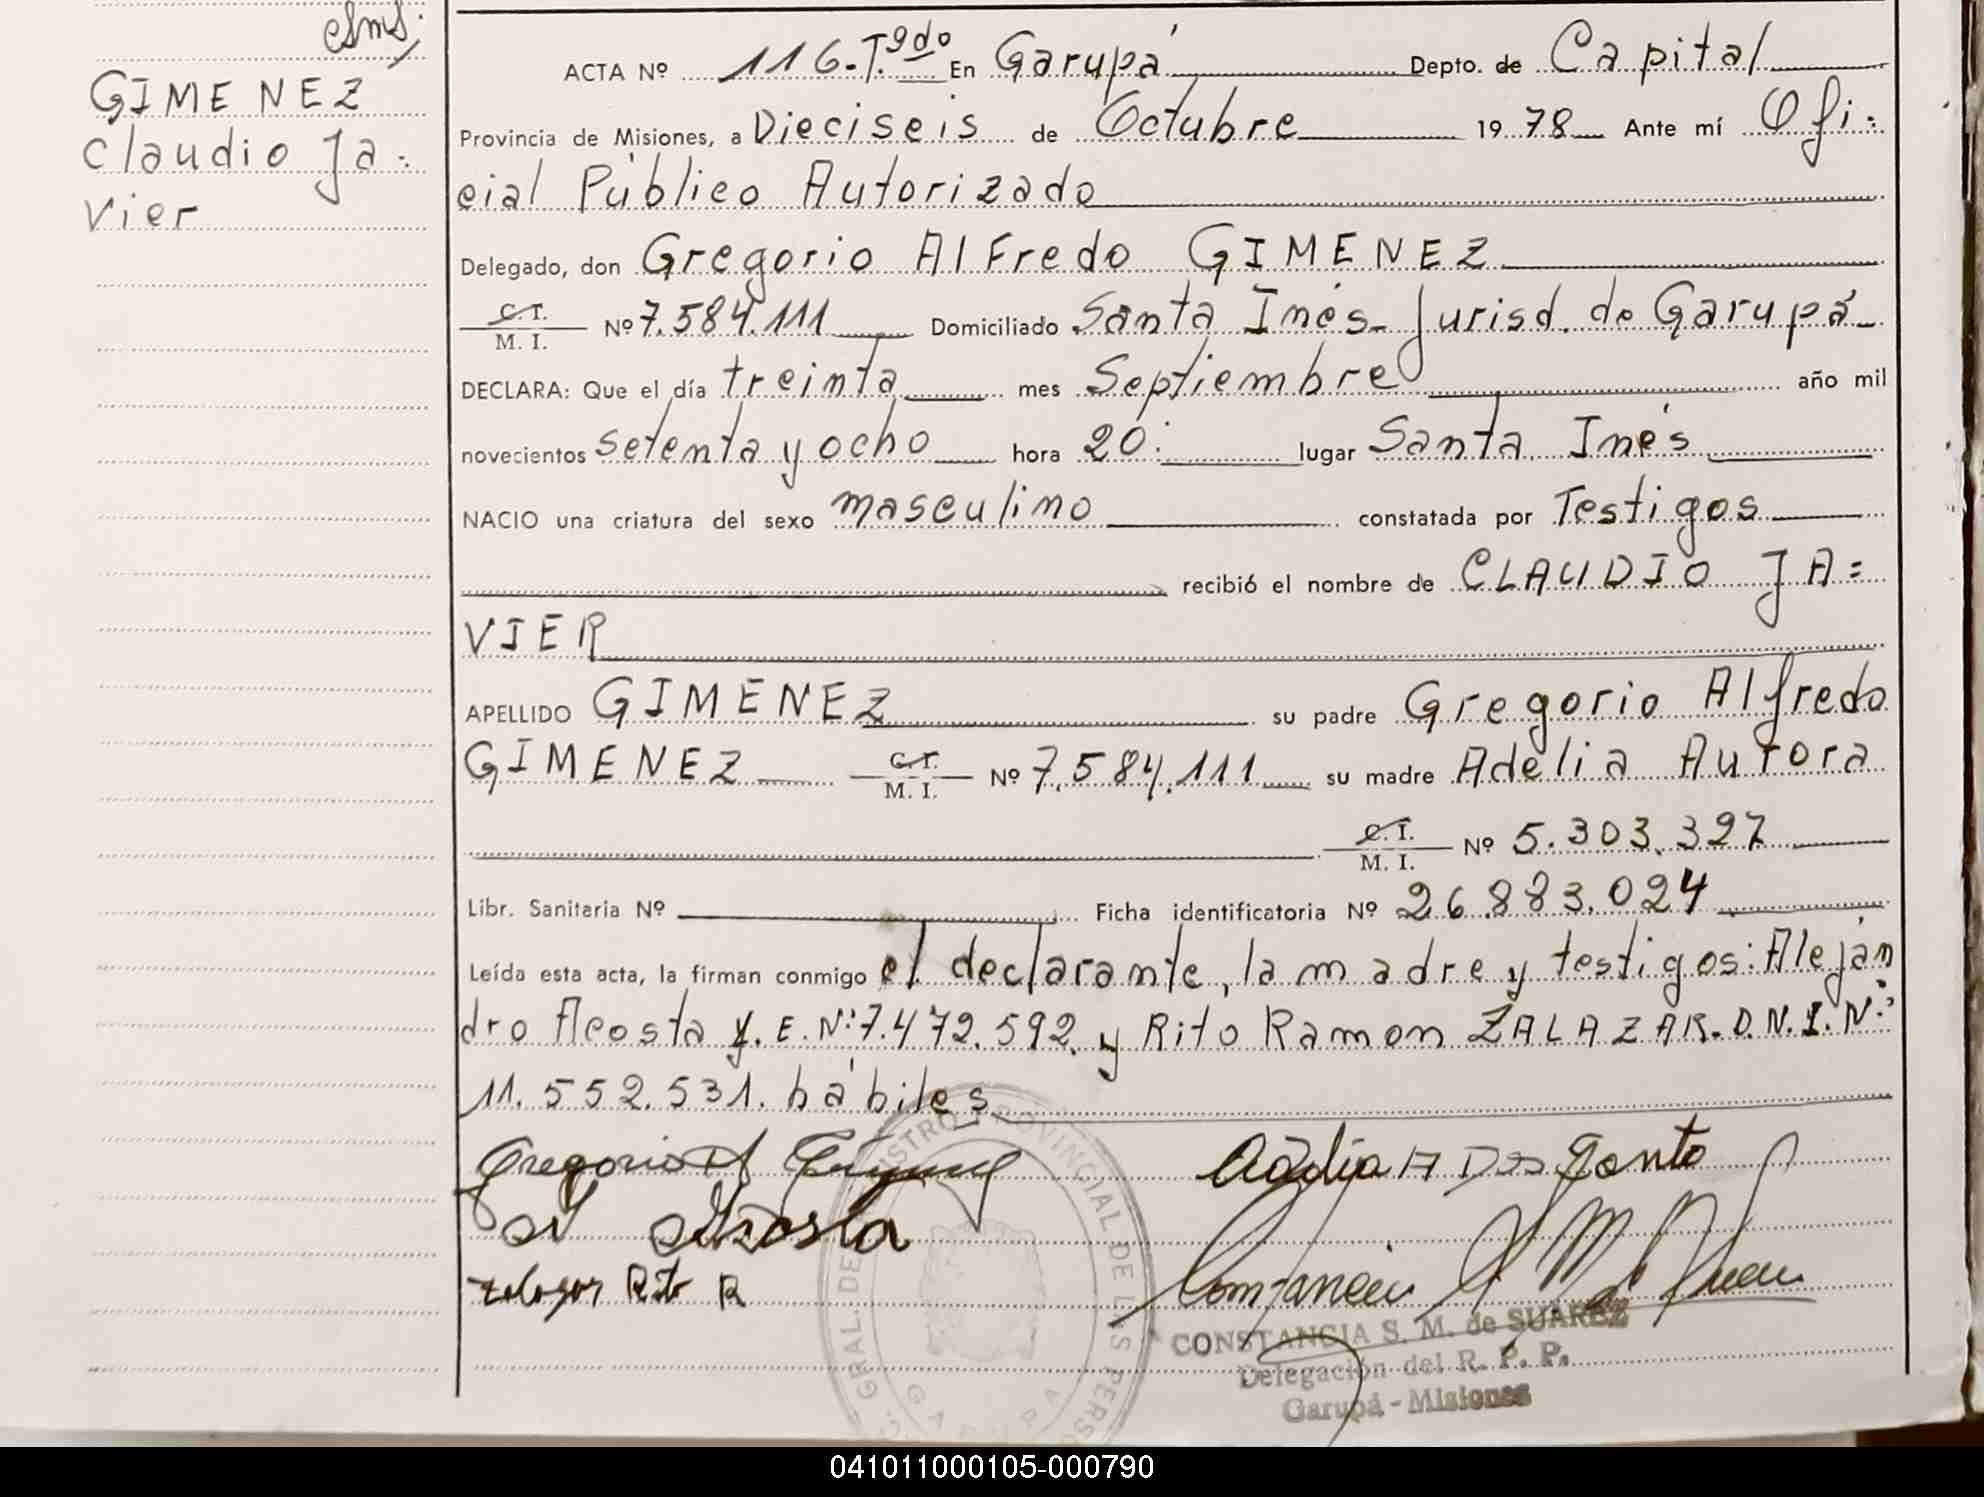 GIMENEZ
Claudio Ja=
vier
ACTA Nº 116-Tº gdo En Garupá Depto. de Capital
Provincia de Misiones, a Dieciseis de Octubre 1978 Ante mí Ofi=
cial Público Autorizado
Delegado, don Gregorio Alfredo GIMENEZ
C. I.
M. I. Nº 7.584.111 Domiciliado Santa Inés- Jurisd. de Garupá
DECLARA: Que el día treinta mes Septiembre año mil
novecientos setenta y ocho hora 20: lugar Santa Inés
NACIO una criatura del sexo masculino constatada por Testigos
recibió el nombre de CLAUDIO JA=
VIER
APELLIDO GIMENEZ su padre Gregorio Alfredo
GIMENEZ C. I. M. I. Nº 7.584.111 su madre Adelia Aurora
C. I. M. I. Nº 5.303.327
Libr. Sanitaria Nº Ficha identificatoria Nº 26.883.024
Leída esta acta, la firman conmigo el declarante, la madre y testigos: Alejan
dro Acosta y. E. Nº 7.472.592. y Rito Ramon ZALAZAR. D.N.I. Nº
11.552.531. hábiles
Gregorio A
Adelia A Dos Santo
A Acosta
Rito R
CONSTANCIA S. M. de SUAREZ
Delegación del R. P. P.
Garupá - Misiones
041011000105-000790